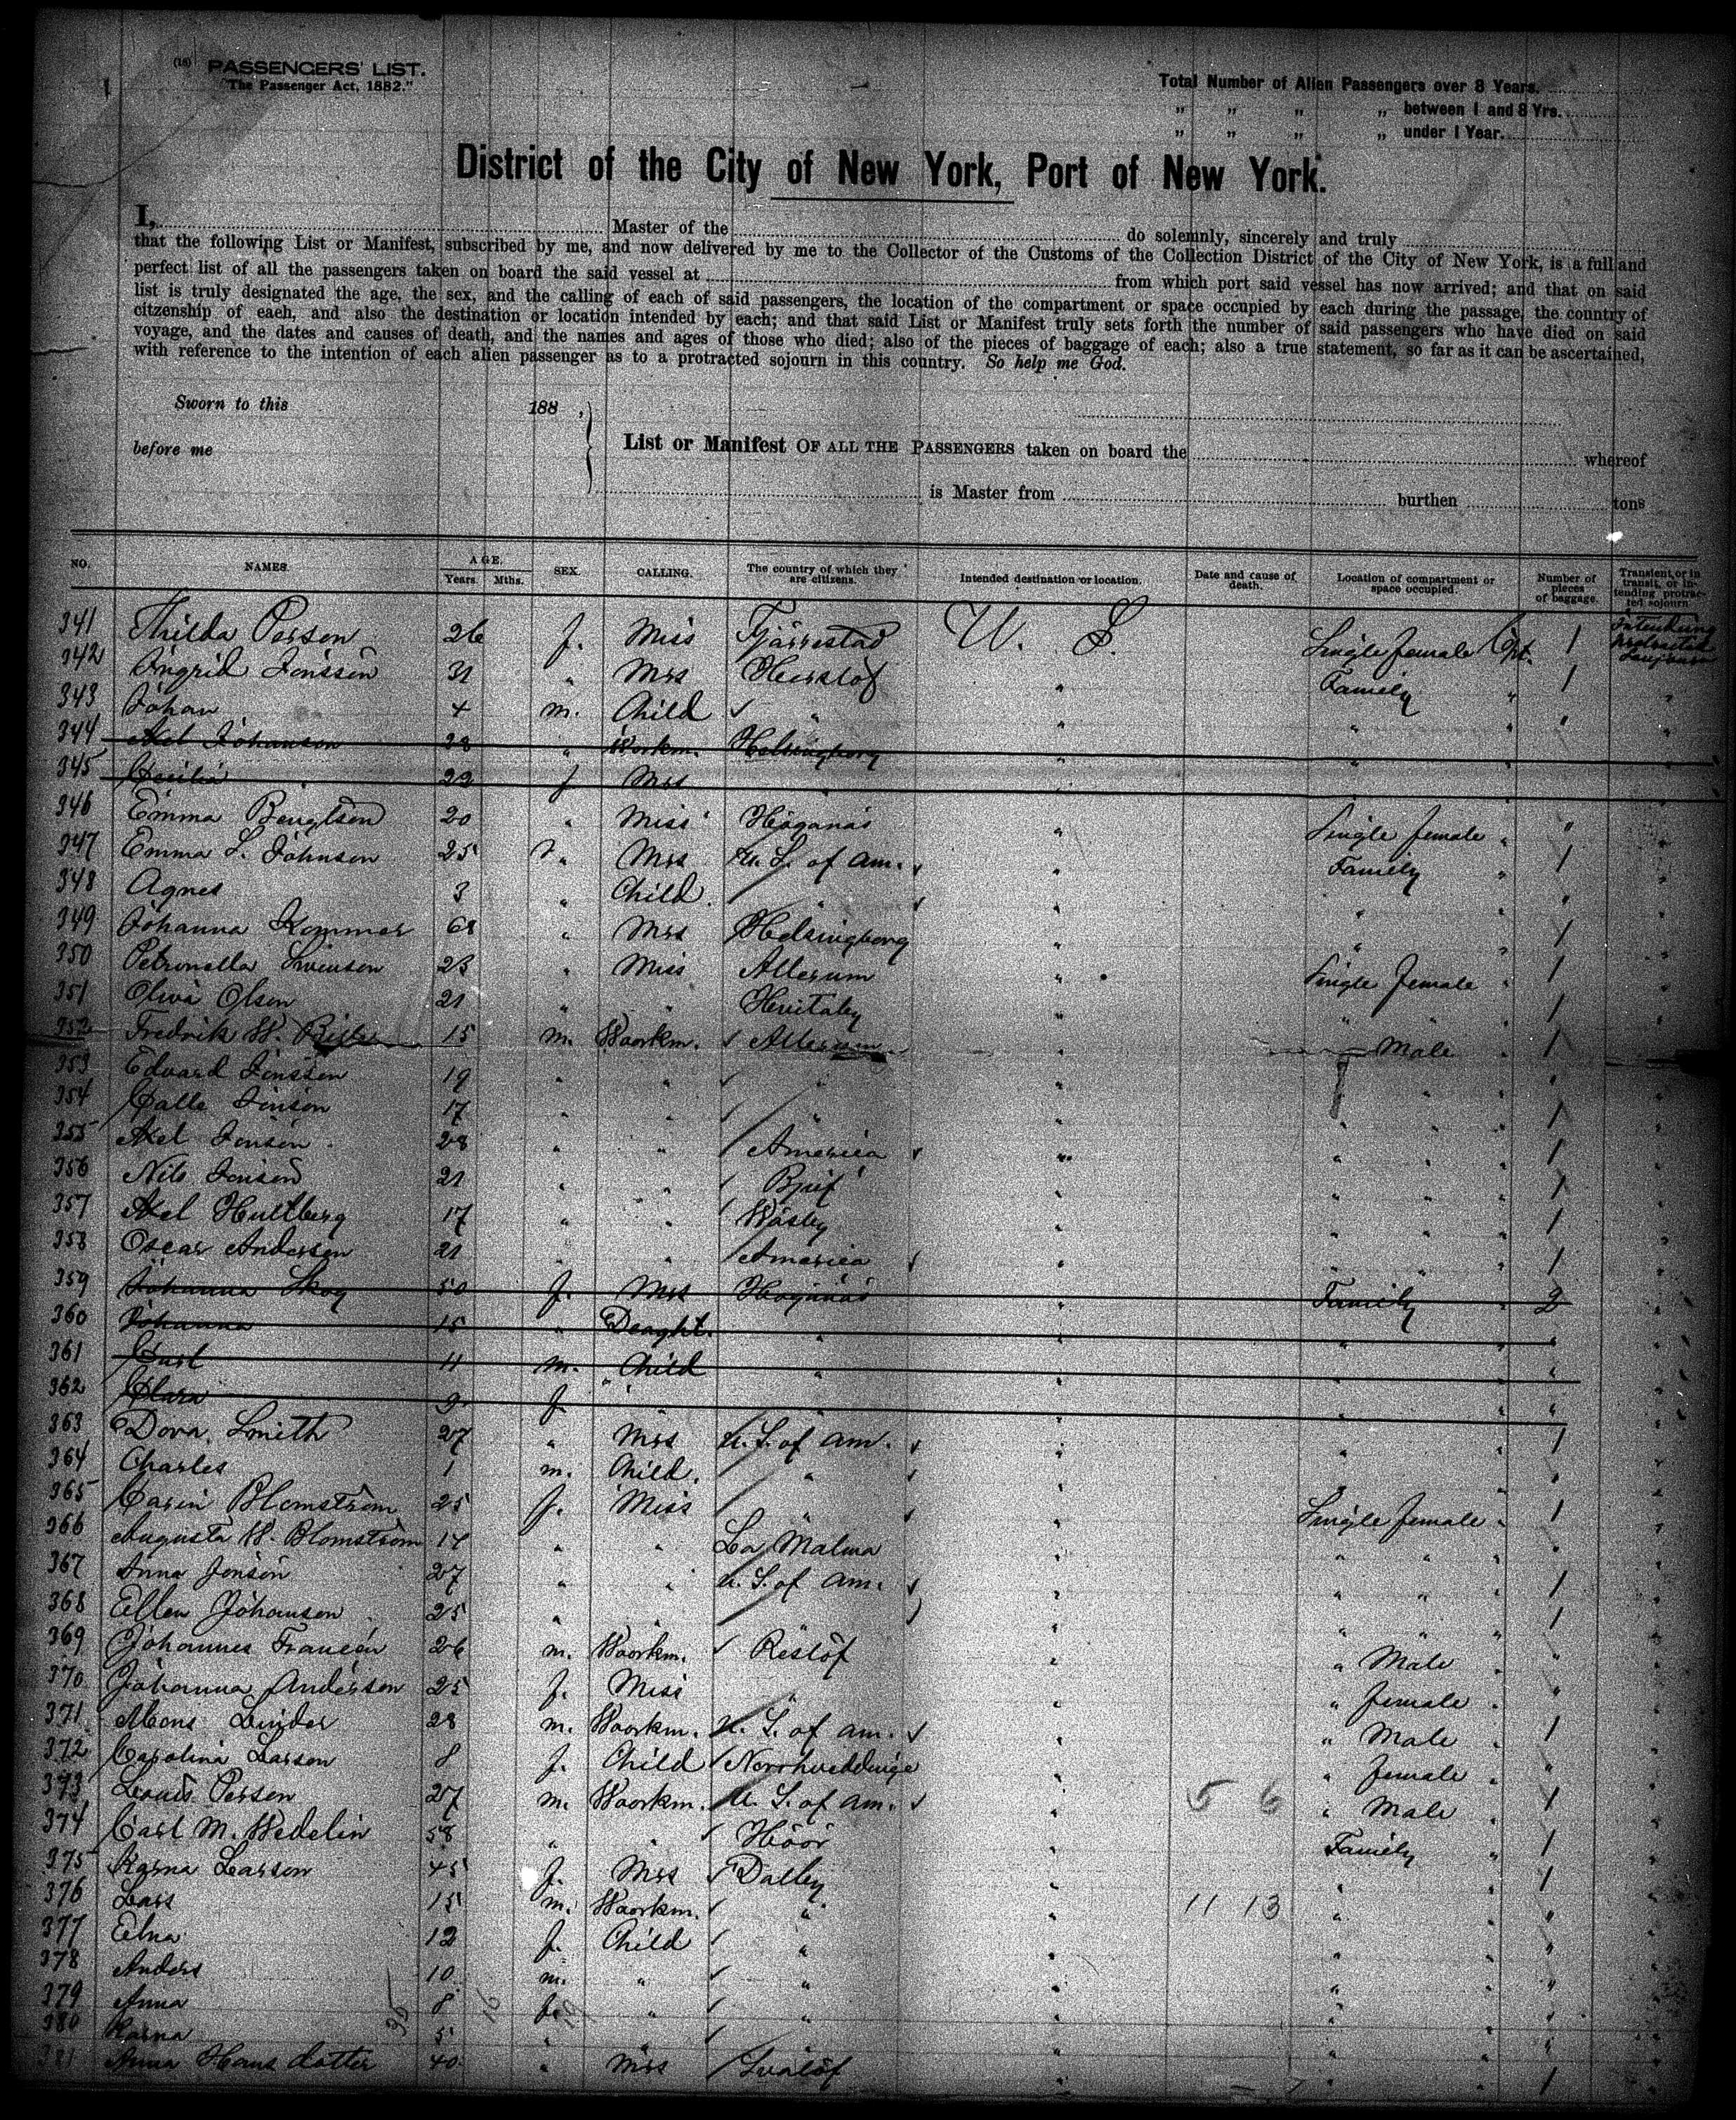 (18) PASSENGERS' LIST.
"The Passenger Act, 1882."
Total Number of Alien Passengers over 8 Years.
" " " " between 1 and 8 Yrs.
" " " " under 1 Year.
District of the City of New York, Port of New York.
I, Master of the do solemnly, sincerely and truly
that the following List or Manifest, subscribed by me, and now delivered by me to the Collector of the Customs of the Collection District of the City of New York, is a full and
perfect list of all the passengers taken on board the said vessel at from which port said vessel has now arrived; and that on said
list is truly designated the age, the sex, and the calling of each of said passengers, the location of the compartment or space occupied by each during the passage, the country of
citzenship of each, and also the destination or location intended by each; and that said List or Manifest truly sets forth the number of said passengers who have died on said
voyage, and the dates and causes of death, and the names and ages of those who died; also of the pieces of baggage of each; also a true statement, so far as it can be ascertained,
with reference to the intention of each alien passenger as to a protracted sojourn in this country. So help me God.
Sworn to this 188 ,
before me
List or Manifest OF ALL THE PASSENGERS taken on board the whereof
is Master from burthen tons
NO. NAMES. AGE. Years. Mths. SEX. CALLING. The country of which they are citizens. Intended destination or location. Date and cause of death. Location of compartment or space occupied. Number of pieces of baggage. Transient or in transit, or intending protracted sojourn
341 Thilda Person 26 f. Miss Fjärrestad U. S. Single female Cpt. 1 Intending protracted
342 Ingrid Jonsson 31 " Mrs Heislöf " Family " 1 "
343 Johan 4 m. Child " " " " " "
344 Axel Johanson 28 " Workm. Helsingborg " " " "
345 Cecilia 23 f Mrs " "
346 Emma Bengtson 20 " Miss Höganäs " Single female " " "
347 Emma S. Johnson 25 " Mrs U. S. of Am. " Family " 1 "
348 Agnes 3 " Child. " " " " " "
349 Johanna Kemmer 68 " Mrs Helsingborg " " " 1 "
350 Petronella Swenson 23 " Miss Allerum " Single female " 1 "
351 Oliva Olsen 21 " " Hvitaby " " " 1 "
352 Fredrik W. 15 m. Workm. Allerum " Male " 1 "
353 Edvard Jonsson 19 " " " " " " " "
354 Calle Jonson 17 " " " " " " 1 "
355 Axel Jonson 28 " " America " " " 1 "
356 Nils Jonson 21 " " Bjuf " " " 1 "
357 Axel Hultberg 17 " " Wäsby " " " 1 "
358 Oscar Anderson 21 " " America " " " 1 "
359 Johanna Skog 50 f. Mrs Höganäs " Family " 2 "
360 Johanna 15 " Daught. " " " " " "
361 Carl 11 m. Child " " " " " "
362 Clara 9 f " " " " " " "
363 Dora Smith 27 " Mrs U. S. of Am. " " " 1 "
364 Charles 1 m. Child. " " " " " "
365 Carin Blomström 25 f. Miss " " Single female " 1 "
366 Augusta W. Blomström 17 " " La Malma " " " " "
367 Anna Jonson 27 " " U. S. of Am. " " " 1 "
368 Ellen Johanson 25 " " " " " 1 "
369 Johannes Francén 26 m. Workm. Reslöf " " Male " " "
370 Johanna Anderson 25 f. Miss " " " female " " "
371 Mons Linder 28 m. Workm. U. S. of Am. " " Male " 1 "
372 Carolina Larson 8 f. Child Norrhveddinge " " female " " "
373 Louis Person 27 m. Workm. U. S. of Am. " 5 6 " Male " 1 "
374 Carl M. Wedelin 58 " " Höör " Family " 1 "
375 Karna Larson 45 f. Mrs Dalby " " 1 "
376 Lars 15 m. Workm. " " 11 13 " " "
377 Elna 12 f. Child " " " " "
378 Anders 10 m. " " " " " "
379 Anna 8 f. " " " " " "
380 Karna 5 " " " " "
381 Anna Hansdotter 40 " Mrs Svalöf " " 1 "